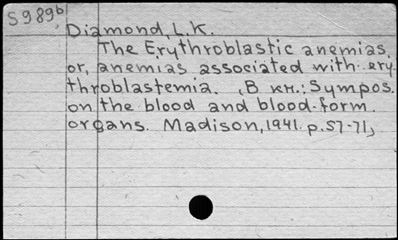 S989b
Diamond, L.K.
The Erythroblastic anemias,
or, anemias associated with ery-
throblastemia. , В кн.: Sympos.
on the blood and blood-form.
organs. Madison, 1941. p.57-71,